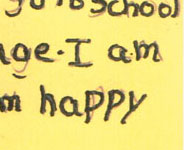 to School
age. I am
m happy